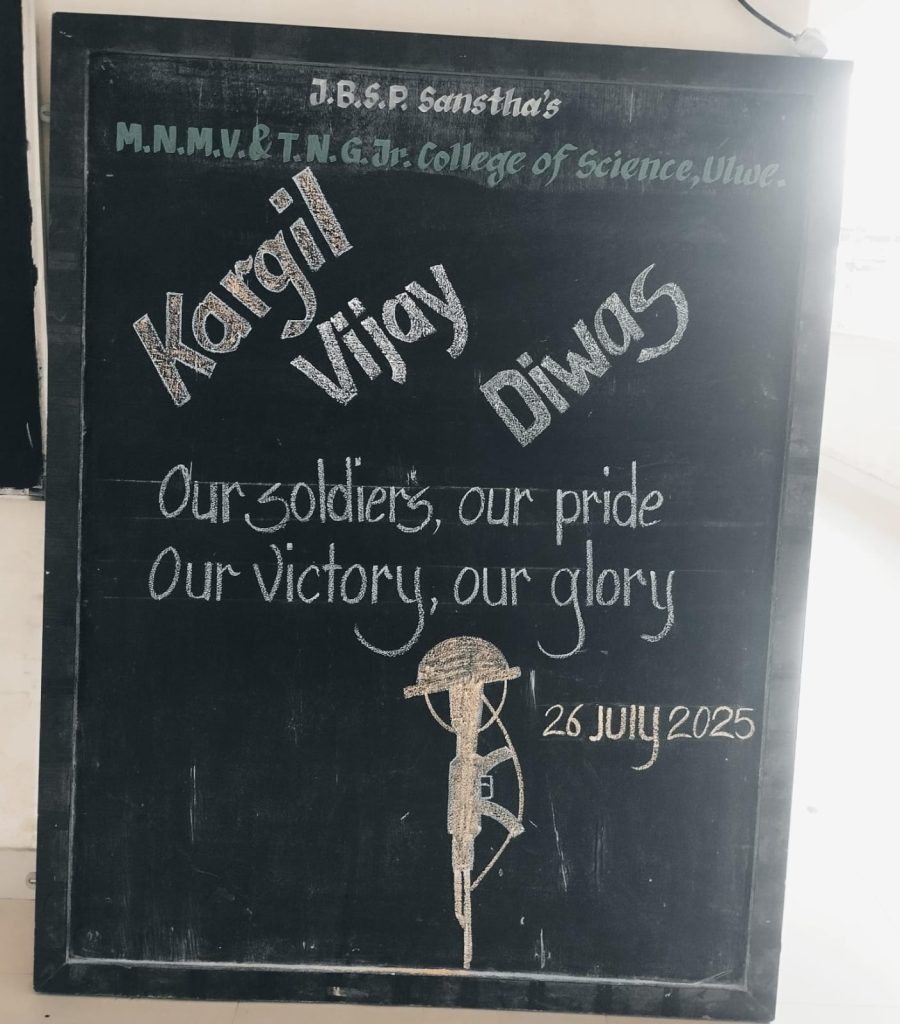 J.B.S.P. Sanstha's
M.N.M.V. & T.N.G. Jr. College of Science, Ulwe.
Kargil
Vijay
Diwas
Our soldiers, our pride
Our Victory, our glory
26 July 2025